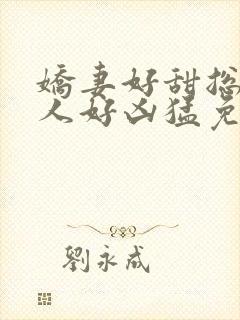 嬌妻好甜摠
人好凶猛免
劉永成